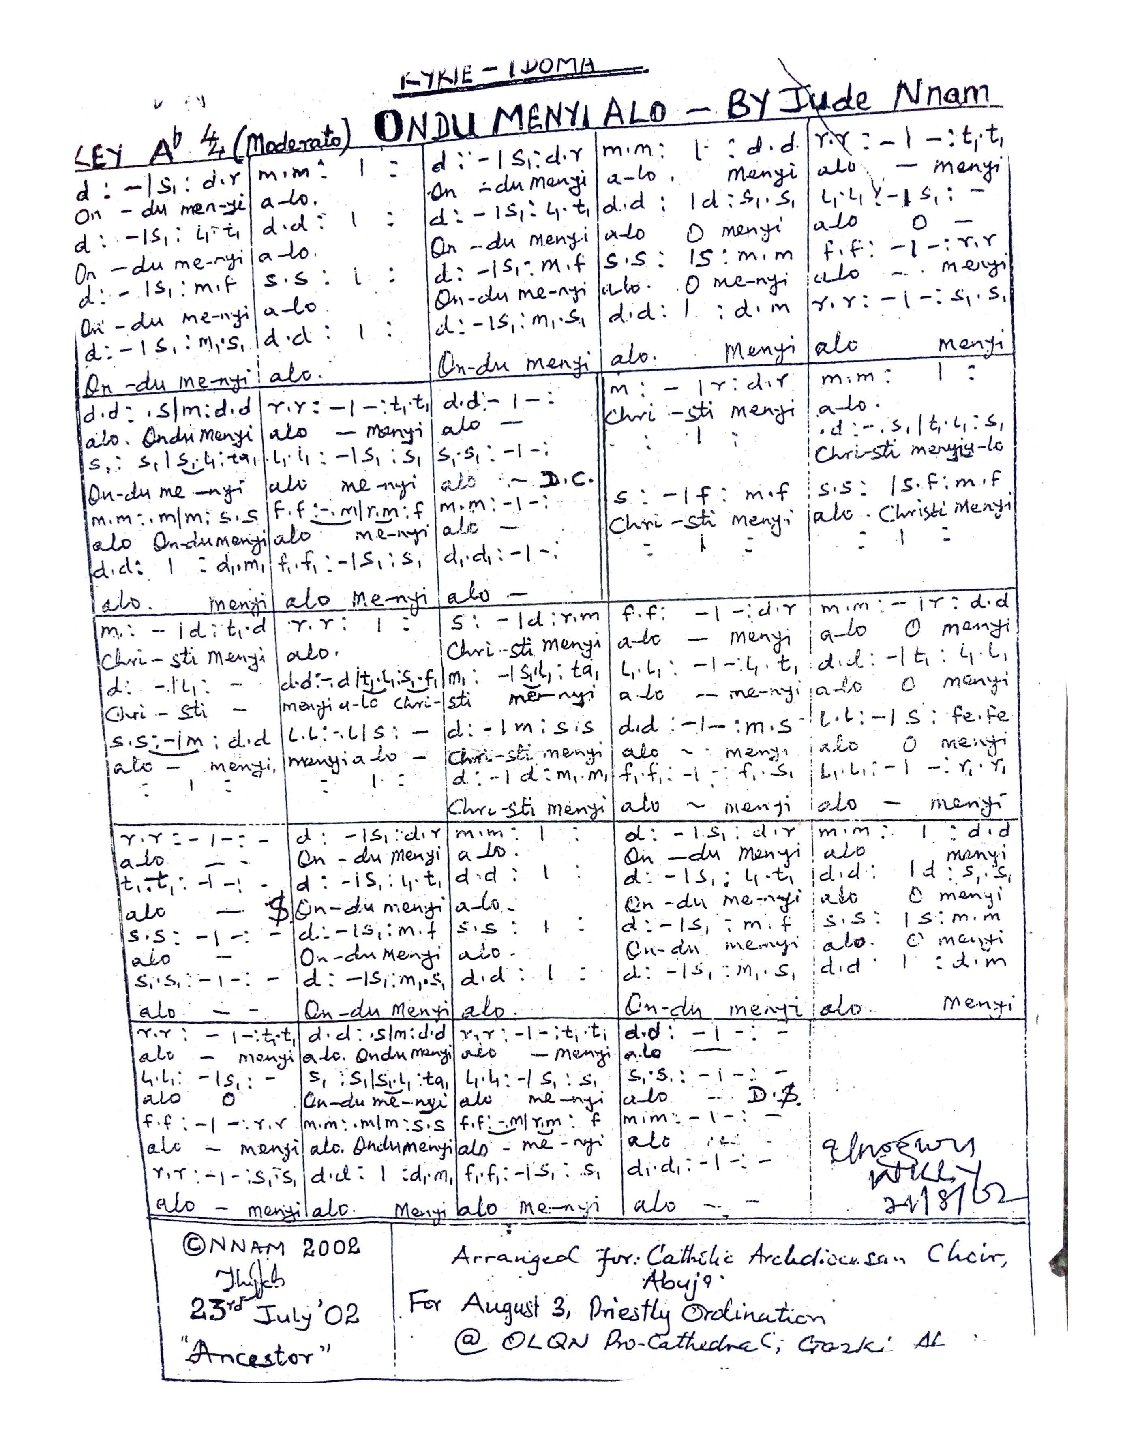 KYRIE - IDOMA
ONDU MENYI ALO - BY Jude Nnam
KEY Ab 4/4 (Moderato)
d : - | s₁ : d . r   m . m :   |   :   d : - | s₁ : d . r   m . m :   |   : d . d   r . r : - | - : t₁ . t₁
On - du men-yi   a-lo.   On - du menyi   a-lo.   menyi   alo - menyi
d : - | s₁ : l₁ . t₁   d . d :   |   :   d : - | s₁ : l₁ . t₁   d . d :   | d : s₁ . s₁   l₁ . l₁ : - | s₁ : -
On - du me-nyi   a-lo.   On - du menyi   alo   O menyi   alo   O -
d : - | s₁ : m . f   s . s :   |   :   d : - | s₁ : m . f   s . s :   | s : m . m   f . f : - | - : r . r
On - du me-nyi   a-lo.   On-du me-nyi   alo.   O me-nyi   alo - menyi
d : - | s₁ : m₁ . s₁   d . d :   |   :   d : - | s₁ : m₁ . s₁   d . d :   |   : d . m   r . r : - | - : s₁ . s₁
On - du me-nyi   alo.   On-du menyi   alo.   Menyi   alo   menyi
d . d : . s | m : d . d   r . r : - | - : t₁ . t₁   d . d : - | - :   m : - | r : d . r   m . m :   |   :
alo. Ondu Menyi   alo - menyi   alo -   Chri - sti menyi   a-lo.
s₁ : s₁ | s₁ . l₁ : ta₁   l₁ . l₁ : - | s₁ : s₁   s₁ . s₁ : - | - :   :   |   :   . d : - . s₁ | t₁ . l₁ : s₁
On-du me-nyi   alo   me-nyi   alo - D.C.   Chri-sti menyia-lo
m . m : . m | m : s . s   f . f : - . m | r . m : f   m . m : - | - :   s : - | f : m . f   s . s :   | s . f : m . f
alo Ondumenyi   alo   me-nyi   alo -   Chri - sti menyi   alo. Christi Menyi
d . d :   |   : d₁ . m₁   f₁ . f₁ : - | s₁ : s₁   d₁ . d₁ : - | - :   :   |   :   :   |   :
alo.   menyi   alo Me-nyi   alo -
m : - | d : t₁ . d   r . r :   |   :   s : - | d : r . m   f . f : - | - : d . r   m . m : - | r : d . d
Chri - sti Menyi   alo.   Chri-sti menyi   a-lo - menyi   a-lo   O menyi
d : - | l₁ : -   d . d : - . d | t₁ . l₁ : s₁ . f₁   m₁ : - | s₁ . l₁ : ta₁   l₁ . l₁ : - | - : l₁ . t₁   d . d : - | t₁ : l₁ . l₁
Chri - sti -   menyi a-lo Chri-   sti   me-nyi   a-lo -- me-nyi   alo   O menyi
s . s : - | m : d . d   l . l : - . l | s : -   d : - | m : s . s   d . d : - | - : m . s   l . l : - | s : fe . fe
alo - menyi,   menyi alo -   Chri-sti menyi   alo ~ menyi   alo   O menyi
:   |   :   :   |   :   d : - | d : m₁ . m₁   f₁ . f₁ : - | - : f₁ . s₁   l₁ . l₁ : - | - : r₁ . r₁
Chri-sti menyi   alo ~ menyi   alo - menyi
r . r : - | - : -   d : - | s₁ : d . r   m . m :   |   :   d : - | s₁ : d . r   m . m :   |   : d . d
a-lo - -   On - du Menyi   a-lo.   On - du Menyi   alo   menyi
t₁ . t₁ : - | - : -   d : - | s₁ : l₁ . t₁   d . d :   |   :   d : - | s₁ : l₁ . t₁   d . d :   | d : s₁ . s₁
alo - $   On-du menyi   a-lo.   On-du me-nyi   alo   O menyi
s . s : - | - : -   d : - | s₁ : m . f   s . s :   |   :   d : - | s₁ : m . f   s . s :   | s : m . m
alo -   On-du Menyi   alo.   On-du menyi   alo.   O menyi
s₁ . s₁ : - | - : -   d : - | s₁ : m₁ . s₁   d . d :   |   :   d : - | s₁ : m₁ . s₁   d . d   |   : d . m
alo - -   On-du Menyi   alo.   On-du menyi   alo.   Menyi
r . r : - | - : t₁ . t₁   d . d : . s | m : d . d   r . r : - | - : t₁ . t₁   d . d : - | - : -
alo - menyi   a-lo. Ondu Menyi   alo - Menyi   a-lo -
l₁ . l₁ : - | s₁ : -   s₁ : s₁ | s₁ . l₁ : ta₁   l₁ . l₁ : - | s₁ : s₁   s₁ . s₁ : - | - : -
alo   O   On-du me-nyi   alo   me-nyi   a-lo - D.$.
f . f : - | - : r . r   m . m : . m | m : s . s   f . f : - . m | r . m : f   m . m : - | - : -
alo - menyi   alo. Ondumenyi   alo - me-nyi   alo
r . r : - | - : s₁ . s₁   d . d :   |   : d₁ . m₁   f₁ . f₁ : - | s₁ : s₁   d₁ . d₁ : - | - : -
alo - menyi   alo.   Menyi   alo me-nyi   alo - -
21/8/02
©NNAM 2002
23rd July '02
"Ancestor"
Arranged for: Catholic Archdiocesan Choir,
Abuja.
For August 3, Priestly Ordination
@ OLQN Pro-Cathedral, Garki